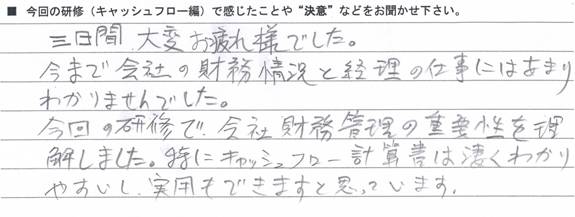 ■ 今回の研修（キャッシュフロー編）で感じたことや“決意”などをお聞かせ下さい。
三日間、大変お疲れ様でした。
今まで会社の財務情況と経理の仕事にはあまり
わかりませんでした。
今回の研修で、会社財務管理の重要性を理
解しました。特にキャッシュフロー計算書は凄くわかり
やすいし、実用もできますと思っています。